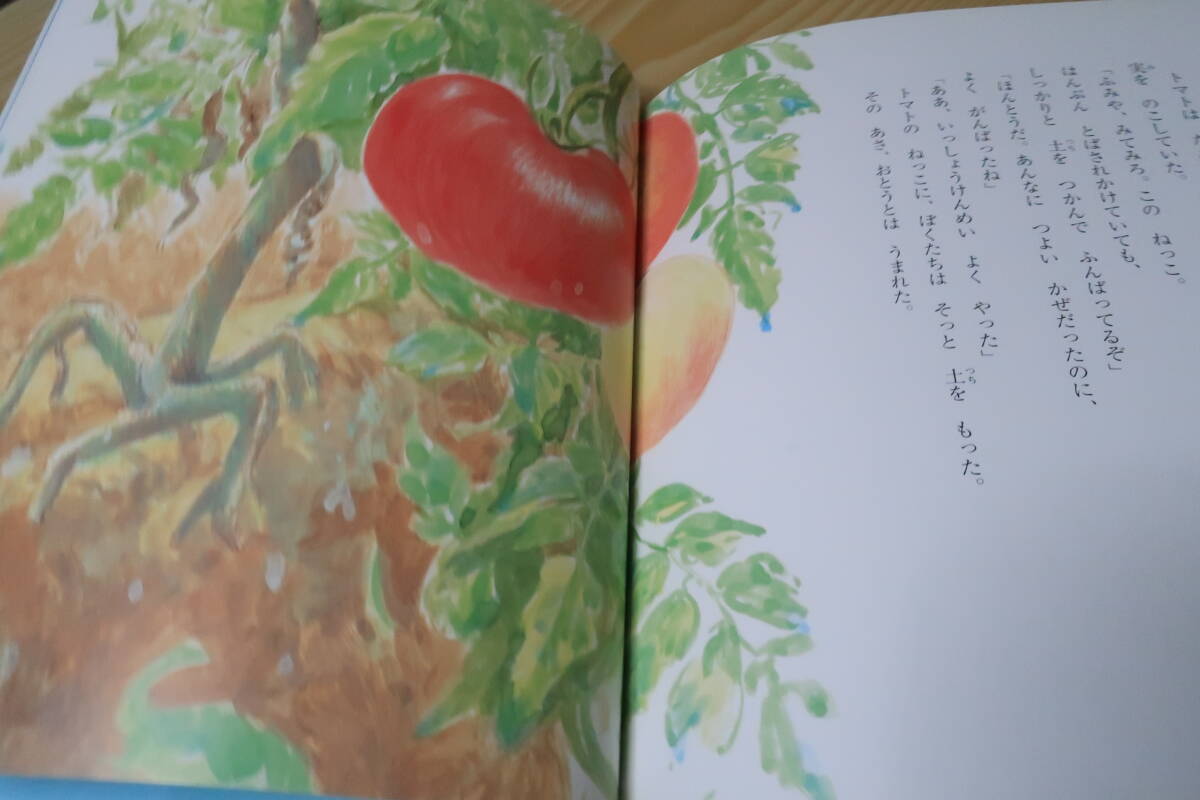 トマトは
実を のこしていた。
「ふみや、みてみろ。この ねっこ。
はんぶん とばされかけていても、
しっかりと 土を つかんで ふんばってるぞ」
「ほんとうだ。あんなに つよい かぜだったのに、
よく がんばったね」
「ああ、いっしょうけんめい よく やった」
トマトの ねっこに、ぼくたちは そっと 土を もった。
その あさ、おとうとは うまれた。